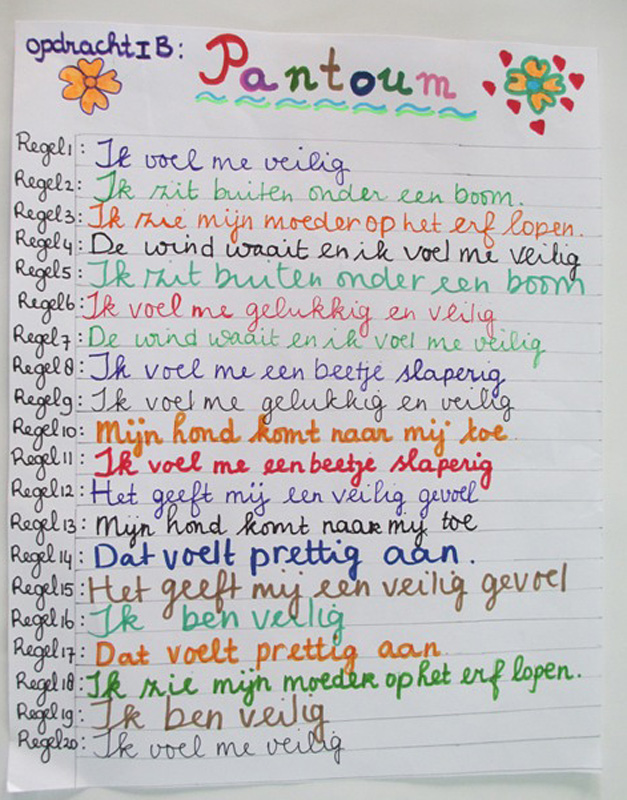 opdracht I B:
Pantoum
Regel 1: Ik voel me veilig
Regel 2: Ik zit buiten onder een boom.
Regel 3: Ik zie mijn moeder op het erf lopen.
Regel 4: De wind waait en ik voel me veilig
Regel 5: Ik zit buiten onder een boom
Regel 6: Ik voel me gelukkig en veilig
Regel 7: De wind waait en ik voel me veilig
Regel 8: Ik voel me een beetje slaperig
Regel 9: Ik voel me gelukkig en veilig
Regel 10: Mijn hond komt naar mij toe
Regel 11: Ik voel me een beetje slaperig
Regel 12: Het geeft mij een veilig gevoel
Regel 13: Mijn hond komt naar mij toe
Regel 14: Dat voelt prettig aan.
Regel 15: Het geeft mij een veilig gevoel
Regel 16: Ik ben veilig
Regel 17: Dat voelt prettig aan
Regel 18: Ik zie mijn moeder op het erf lopen.
Regel 19: Ik ben veilig
Regel 20: Ik voel me veilig